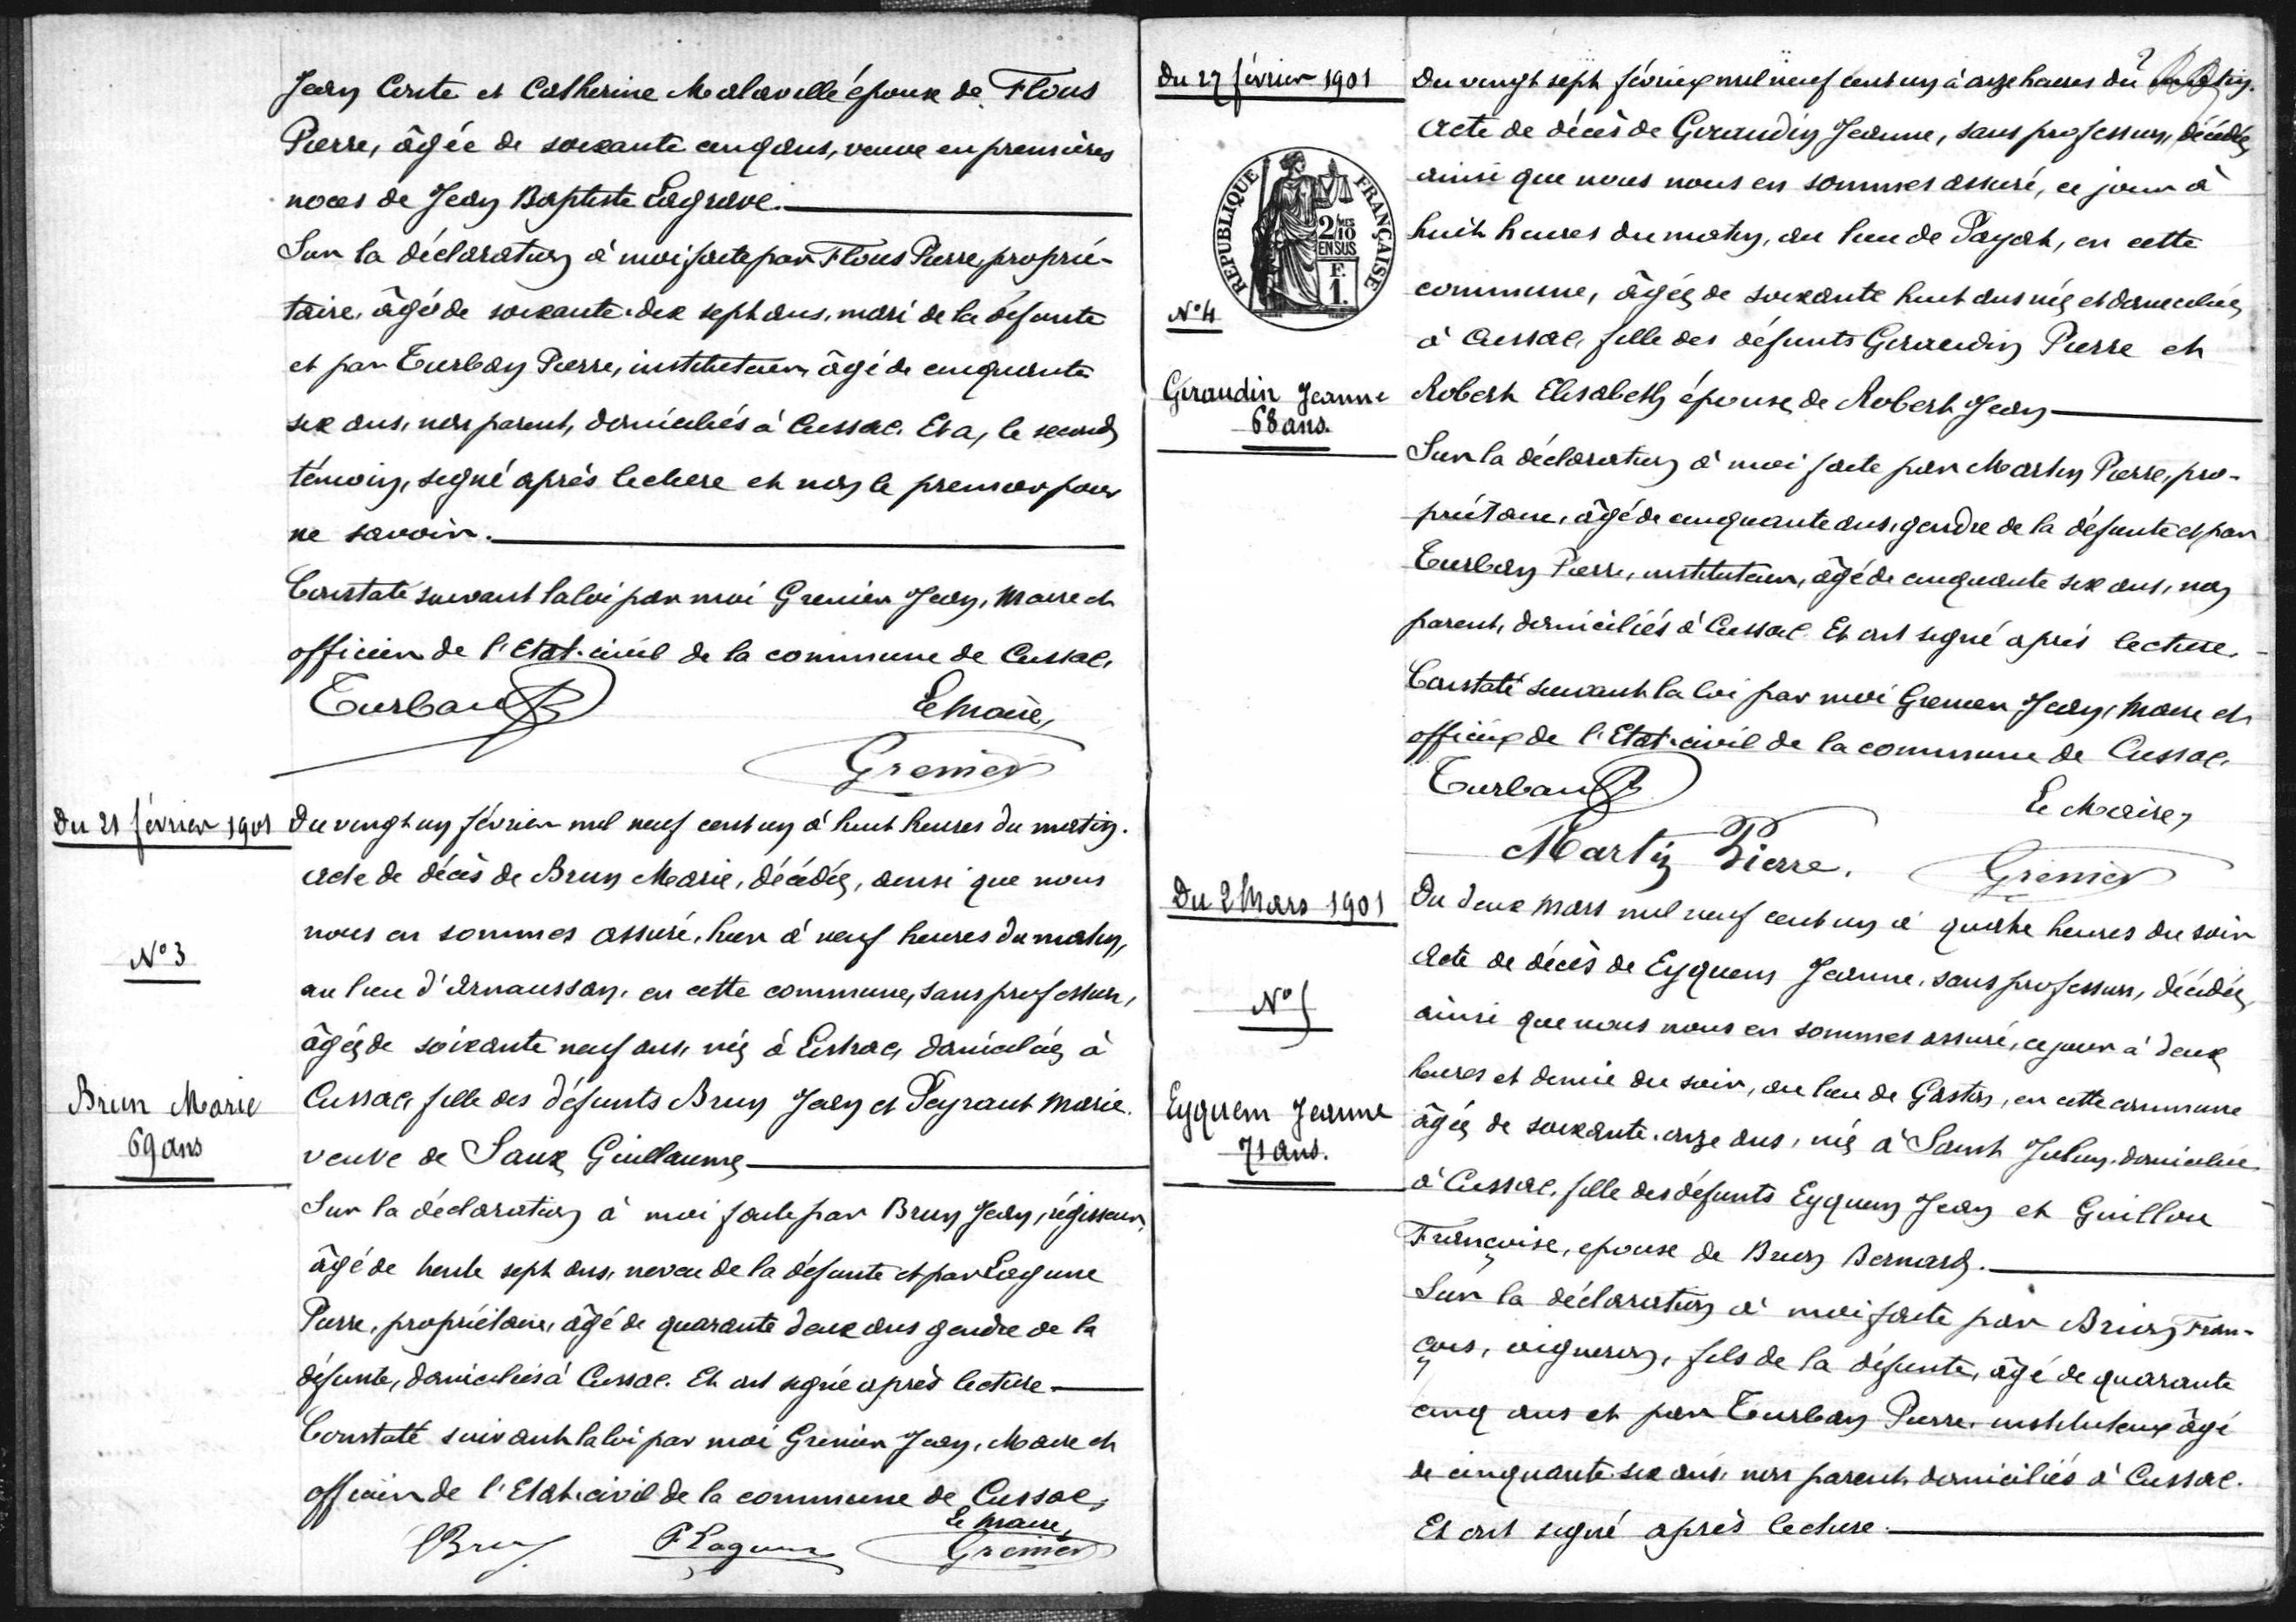 Jean Conte et Catherine Malavelle épouse de Flous
Pierre, âgée de soixante cinq ans, veuve en premières
noces de Jean Baptiste Lagrave.
Sur la déclaration à moi faite par Flous Pierre, proprié-
taire, âgé de soixante-dix sept ans, mari de la défunte
et par Turban Pierre, instituteur, âgé de cinquante
six ans, non parent, domiciliés à Cussac. Et a, le second
témoin, signé après lecture et non le premier pour
ne savoir.
Constaté suivant la loi par moi Grenier Jean, Maire et
officier de l'Etat-civil de la commune de Cussac,
Turban
Le Maire,
Grenier
Du 21 février 1901
N° 3
Brun Marie
69 ans
Du vingt un février mil neuf cent un à huit heures du matin.
Acte de décès de Brun Marie, décédée, ainsi que nous
nous en sommes assuré, hier à neuf heures du matin,
au lieu d'Arnausson, en cette commune, sans profession,
âgée de soixante neuf ans, née à Listrac, domiciliée à
Cussac, fille des défunts Brun Jean et Peyraut Marie.
veuve de Saux Guillaume
Sur la déclaration à moi faite par Brun Jean, régisseur,
âgé de trente sept ans, neveu de la défunte et par Lagune
Pierre, propriétaire, âgé de quarante deux ans gendre de la
défunte, domiciliés à Cussac. Et ont signé après lecture
Constaté suivant la loi par moi Grenier Jean, Maire et
officier de l'Etat-civil de la commune de Cussac,
Le Maire,
Brun P Lagune Grenier
2
Du 27 février 1901
REPUBLIQUE FRANÇAISE
2/10
EN SUS
F.
1.
N° 4
Giraudin Jeanne
68 ans.
Du vingt sept février mil neuf cent un à onze heures du matin.
Acte de décès de Giraudin Jeanne, sans profession, décédée,
ainsi que nous nous en sommes assuré, ce jour à
huit heures du matin, au lieu de Payat, en cette
commune, âgée de soixante huit ans née et domiciliée
à Cussac, fille des défunts Giraudin Pierre et
Robert Elisabeth épouse de Robert Jean
Sur la déclaration à moi faite par Martin Pierre, pro-
priétaire, âgé de cinquante ans, gendre de la défunte et par
Turban Pierre, instituteur, âgé de cinquante six ans, non
parent, domiciliés à Cussac. Et ont signé après lecture.
Constaté suivant la loi par moi Grenier Jean, Maire et
officier de l'Etat-civil de la commune de Cussac,
Turban
Le Maire,
Martin Pierre. Grenier
Du 2 Mars 1901
N° 5
Eyquem Jeanne
71 ans.
Du deux mars mil neuf cent un à quatre heures du soir
Acte de décès de Eyquem Jeanne, sans profession, décédée,
ainsi que nous nous en sommes assuré, ce jour à deux
heures et demie du soir, au lieu de Gaston, en cette commune
âgée de soixante-onze ans, née à Saint Julien, domiciliée
à Cussac, fille des défunts Eyquem Jean et Guillou
Françoise, épouse de Brun Bernard.
Sur la déclaration à moi faite par Brun Fran-
çois, vigneron, fils de la défunte, âgé de quarante
cinq ans et par Turban Pierre, instituteur âgé
de cinquante-six ans, non parent, domiciliés à Cussac.
Et ont signé après lecture.